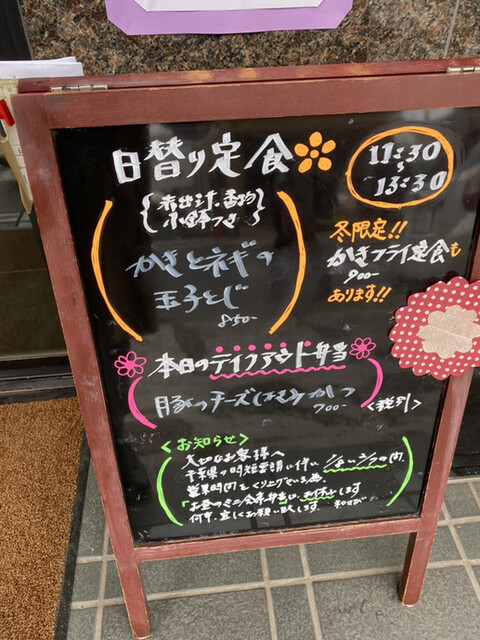 日替り定食
11:30
~
13:30
小鉢つき
かきとネギの
玉子とじ
850-
冬限定!!
かきフライ定食も
900-
あります!!
本日のテイクアウト弁当
豚のチーズはさみかつ
700-
<税別>
<お知らせ>
大切なお客様へ
千葉県の時短要請に伴い
営業時間を くり上げている為、
「お昼のミニ会席弁当」は、お休みします
何卒、宜しくお願い致します